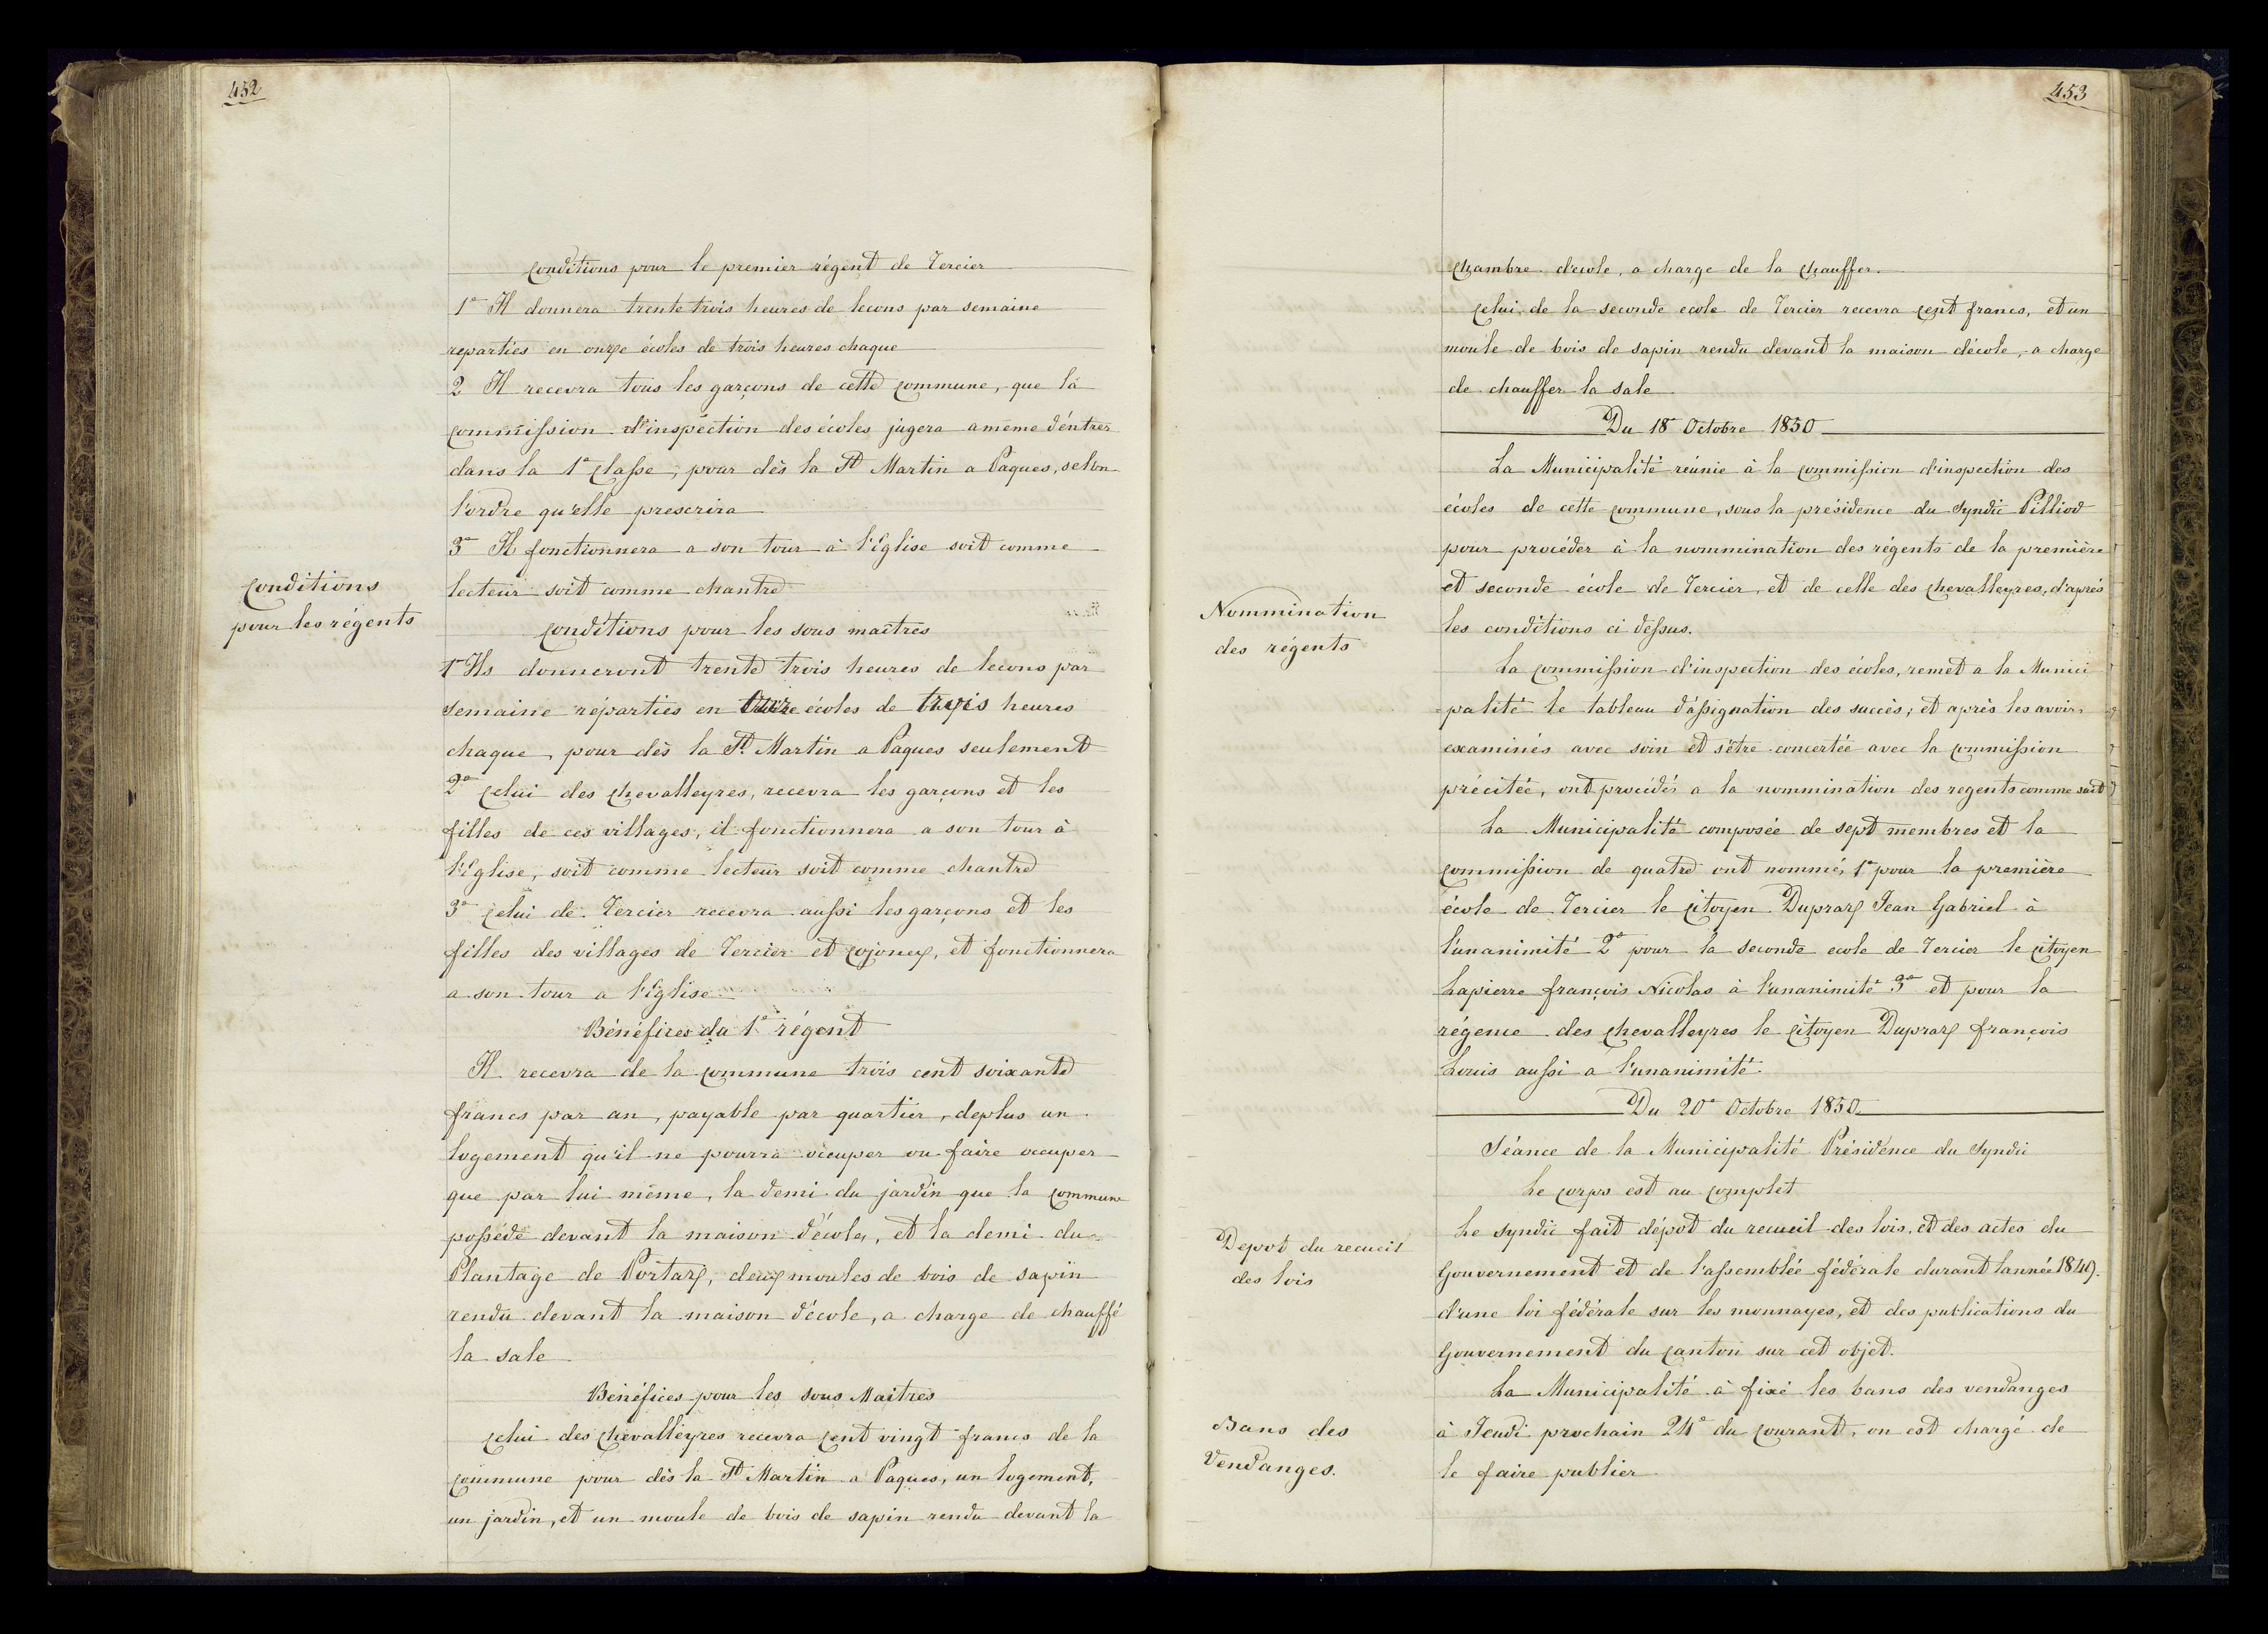 452
Conditions pour le premier régent de Tercier
1° Il donnera trente trois heures de lecons par semaine
reparties en onze écoles de trois heures chaque
2 Il recevra tous les garçons de cette Commune, que la
Commission d'inspéction des écoles jugera a même d'éntrer
dans la 1e Classe, pour dès la St Martin a Paques, selon
l'ordre qu'elle prescrira
3° Il fonctionnera a son tour à l'Eglise soit comme
lecteur soit comme chantre
Conditions
pour les régents
Conditions pour les sous maîtres
1° Ils donneront trente trois heures de lecons par
semaine réparties en onze écoles de trois heures
chaque, pour dès la St Martin a Paques seulement
2° Celui des Chevalleyres, recevra les garçons et les
filles de ces villages, il fonctionnera a son tour à
l'Eglise, soit comme lecteur soit comme chantre
3° Celui de Tercier recevra aussi les garçons et les
filles des villages de Tercier et Cojonex, et fonctionnera
a son tour a l'Eglise
Bénéfices du 1e régent
Il recevra de la Commune trois cent soixante
francs par an, payable par quartier, deplus un
logement qu'il ne pourra occuper ou faire occuper
que par lui même, la demi du jardin que la Commune
possède devant la maison d'école, et la demi du
Plantage de Portaz, deux moules de bois de sapin
rendu devant la maison d'école, a charge de chauffé
la sale
Bénéfices pour les sous Maitres
Celui des Chevalleyres recevra Cent vingt francs de la
Commune pour dès la St Martin a Paques, un logement,
un jardin, et un moule de bois de sapin rendu devant la
453
Chambre d'ecole, a charge de la Chauffer.
Celui de la seconde ecole de Tercier recevra Cent francs, et un
moule de bois de sapin rendu devant la maison d'école, a charge
de chauffer la sale
Du 18e Octobre 1850
La Municipalité réunie à la Commission d'inspection des
écoles de cette Commune, sous la présidence du Syndic Pilliod
pour procéder à la nommination des régents de la première
et seconde école de Tercier, et de celle des Chevalleyres, d'après
les conditions ci dessus.
Nommination
des régents
La Commission d'inspection des écoles, remet a la Munici
=palité le tableau d'assignation des succès; et après les avoir
examinés avec soin et s'être concertée avec la Commission
précitée, ont procédés a la nommination des regents comme suit
La Municipalité composée de sept membres et la
Commission de quatre ont nommé, 1° pour la première
école de Tercier le Citoyen Dupraz Jean Gabriel à
l'unanimité 2° pour la seconde ecole de Tercier le Citoyen
Lapierre françois Nicolas à l'unanimité 3° et pour la
régence des Chevalleyres le Citoyen Dupraz françois
Louis aussi a l'unanimité.
Du 20e Octobre 1850
Séance de la Municipalité Présidence du Syndic
Le Corps est au Complet
Le Syndic fait dépot du recueil des lois, et des actes du
Gouvernement et de l'assemblée fédérale durant l'année 1849.
d'une loi fédérale sur les monnayes, et des publications du
Gouvernement du Canton sur cet objet.
Depot du recueil
des lois
La Municipalité à fixé les bans des vendanges
à Jeudi prochain 24e du Courant, on est chargé de
le faire publier
Bans des
Vendanges.